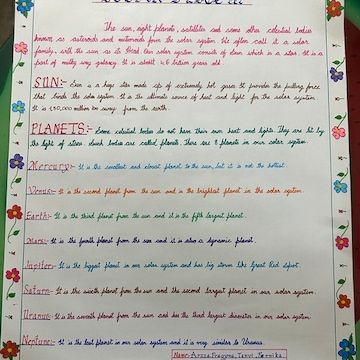 The sun, eight planets, satellites and some other celestial bodies
known as asteroids and meteoroids form the solar system. We often call it a solar
family, with the sun as its head. Our solar system consists of which is a star. It is a
part of milky way galaxy. It is about 4.6 billion years old
SUN:- Sun is a huge star made up of extremely hot gases. It provides the pulling force
that binds the solar system. It is the ultimate source of heat and light for the solar system
It is 150,000 million km away from the earth.
PLANETS:- Some celestial bodies do not have their own heat and lights. They are lit by
the light of stars. Such bodies are called planets. There are 8 planets in our solar system.
Mercury:- It is the smallest and closest planet to the sun, but it is not the hottest.
Venus:- It is the second planet from the sun and the brightest planet in the solar system.
Earth:- It is the third planet from the sun and it is the fifth largest planet.
Mars:- It is the fourth planet from the sun and it is also a dynamic planet.
Jupiter:- It is the biggest planet in our solar system and has big storms like Great Red Spot.
Saturn:- It is the sixth planet from the sun and the second largest planet in our solar system.
Uranus:- It is the seventh planet from the sun and has the third largest diameter in our solar system.
Neptune:- It is the last planet in our solar system and it is very similar to Uranus.
Name:-